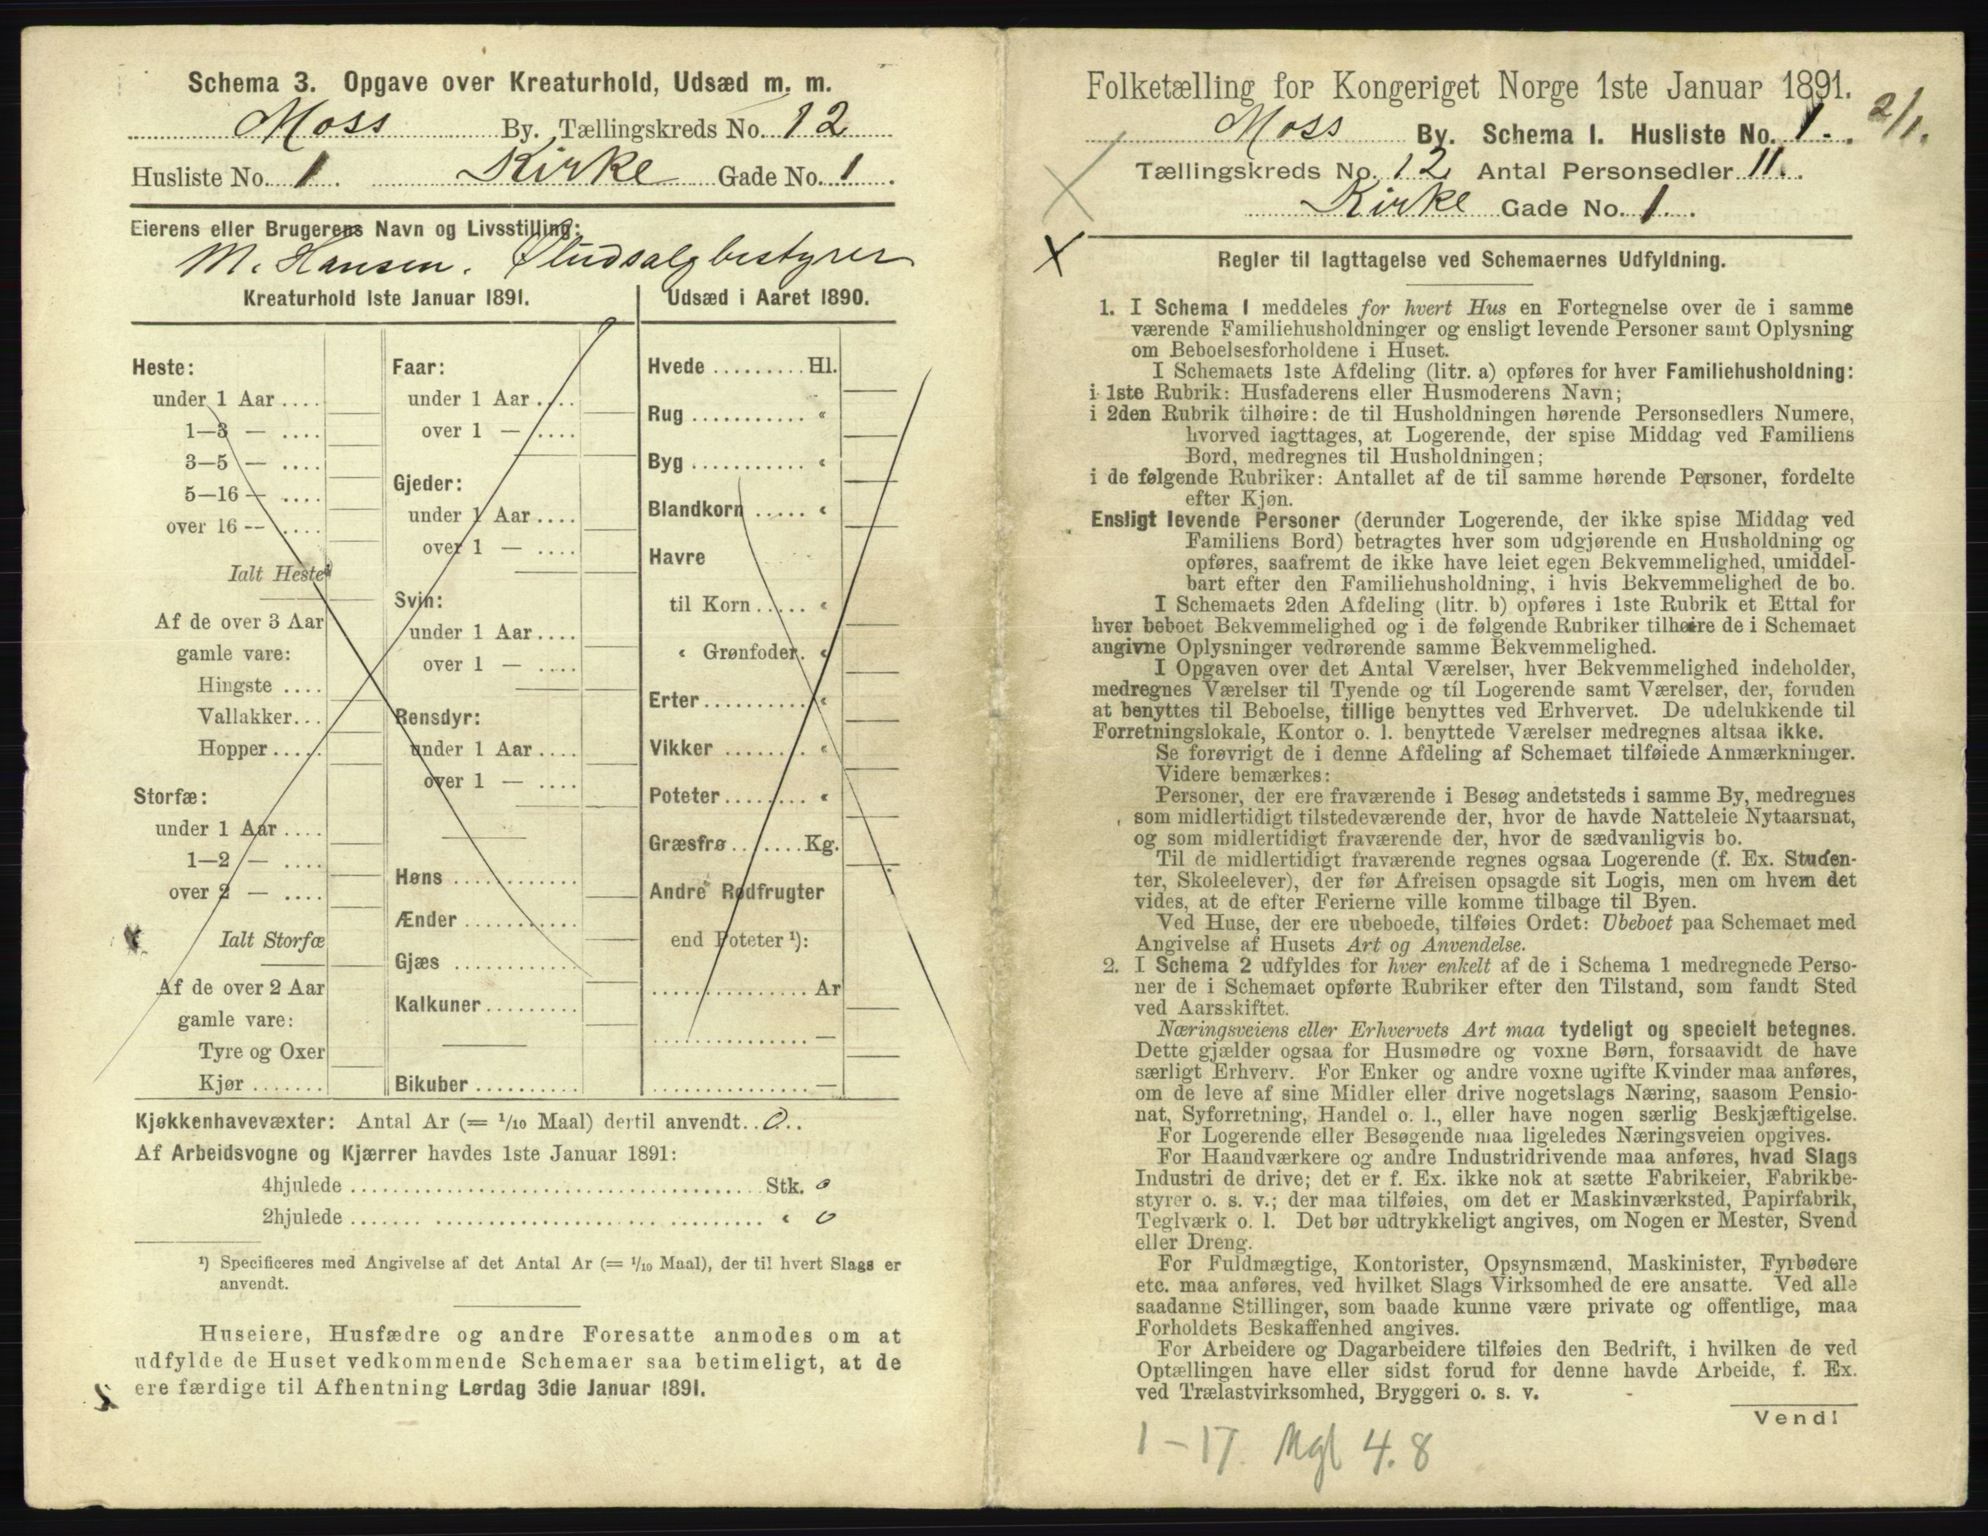 Schema 3. Opgave over Kreaturhold, Udsæd m. m.
Moss By. Tællingskreds No. 12
Husliste No. 1. Kirke Gade No. 1.
Eierens eller Brugerens Navn og Livsstilling:
M. Hansen. Øludsalgbestyrer
Kreaturhold 1ste Januar 1891.
Heste:
under 1 Aar ....
1—3 — ....
3—5 — ....
5—16 — ....
over 16 — ....
Ialt Heste
Af de over 3 Aar
gamle vare:
Hingste ....
Vallakker...
Hopper .....
Storfæ:
under 1 Aar ....
1—2 — ....
over 2 — ....
Ialt Storfæ
Af de over 2 Aar
gamle vare:
Tyre og Oxer
Kjør .......
Faar:
under 1 Aar ....
over 1 — ....
Gjeder:
under 1 Aar ....
over 1 — ....
Svin:
under 1 Aar ....
over 1 — ....
Rensdyr:
under 1 Aar ....
over 1 — ....
Høns ............
Ænder ...........
Gjæs ............
Kalkuner .........
Bikuber ..........
Udsæd i Aaret 1890.
Hvede ......... Hl.
Rug ........... «
Byg ........... «
Blandkorn ..... «
Havre
til Korn ..... «
« Grønfoder. «
Erter.......... «
Vikker ........ «
Poteter........ «
Græsfrø ....... Kg.
Andre Rodfrugter
end Poteter ¹):
............... Ar
............... —
............... —
Kjøkkenhavevæxter: Antal Ar (= 1/10 Maal) dertil anvendt.. 0..
Af Arbeidsvogne og Kjærrer havdes 1ste Januar 1891:
4hjulede ........................................ Stk. 0
2hjulede ........................................ « 0
¹) Specificeres med Angivelse af det Antal Ar (= 1/10 Maal), der til hvert Slags er
anvendt.
Huseiere, Husfædre og andre Foresatte anmodes om at
udfylde de Huset vedkommende Schemaer saa betimeligt, at de
ere færdige til Afhentning Lørdag 3die Januar 1891.
Folketælling for Kongeriget Norge 1ste Januar 1891.
2/1.
Moss By. Schema 1. Husliste No. 1.
Tællingskreds No. 12 Antal Personsedler 11.
Kirke Gade No. 1.
Regler til Iagttagelse ved Schemaernes Udfyldning.
1. I Schema 1 meddeles for hvert Hus en Fortegnelse over de i samme
værende Familiehusholdninger og ensligt levende Personer samt Oplysning
om Beboelsesforholdene i Huset.
I Schemaets 1ste Afdeling (litr. a) opføres for hver Familiehusholdning:
i 1ste Rubrik: Husfaderens eller Husmoderens Navn;
i 2den Rubrik tilhøire: de til Husholdningen hørende Personsedlers Numere,
hvorved iagttages, at Logerende, der spise Middag ved Familiens
Bord, medregnes til Husholdningen;
i de følgende Rubriker: Antallet af de til samme hørende Personer, fordelte
efter Kjøn.
Ensligt levende Personer (derunder Logerende, der ikke spise Middag ved
Familiens Bord) betragtes hver som udgjørende en Husholdning og
opføres, saafremt de ikke have leiet egen Bekvemmelighed, umiddel-
bart efter den Familiehusholdning, i hvis Bekvemmelighed de bo.
I Schemaets 2den Afdeling (litr. b) opføres i 1ste Rubrik et Ettal for
hver beboet Bekvemmelighed og i de følgende Rubriker tilhøire de i Schemaet
angivne Oplysninger vedrørende samme Bekvemmelighed.
I Opgaven over det Antal Værelser, hver Bekvemmelighed indeholder,
medregnes Værelser til Tyende og til Logerende samt Værelser, der, foruden
at benyttes til Beboelse, tillige benyttes ved Erhvervet. De udelukkende til
Forretningslokale, Kontor o. l. benyttede Værelser medregnes altsaa ikke.
Se forøvrigt de i denne Afdeling af Schemaet tilføiede Anmærkninger.
Videre bemærkes:
Personer, der ere fraværende i Besøg andetsteds i samme By, medregnes
som midlertidigt tilstedeværende der, hvor de havde Natteleie Nytaarsnat,
og som midlertidigt fraværende der, hvor de sædvanligvis bo.
Til de midlertidigt fraværende regnes ogsaa Logerende (f. Ex. Studen-
ter, Skoleelever), der før Afreisen opsagde sit Logis, men om hvem det
vides, at de efter Ferierne ville komme tilbage til Byen.
Ved Huse, der ere ubeboede, tilføies Ordet: Ubeboet paa Schemaet med
Angivelse af Husets Art og Anvendelse.
2. I Schema 2 udfyldes for hver enkelt af de i Schema 1 medregnede Perso-
ner de i Schemaet opførte Rubriker efter den Tilstand, som fandt Sted
ved Aarsskiftet.
Næringsveiens eller Erhvervets Art maa tydeligt og specielt betegnes.
Dette gjælder ogsaa for Husmødre og voxne Børn, forsaavidt de have
særligt Erhverv. For Enker og andre voxne ugifte Kvinder maa anføres,
om de leve af sine Midler eller drive nogetslags Næring, saasom Pensio-
nat, Syforretning, Handel o. l., eller have nogen særlig Beskjæftigelse.
For Logerende eller Besøgende maa ligeledes Næringsveien opgives.
For Haandværkere og andre Industridrivende maa anføres, hvad Slags
Industri de drive; det er f. Ex. ikke nok at sætte Fabrikeier, Fabrikbe-
styrer o. s. v.; der maa tilføies, om det er Maskinværksted, Papirfabrik,
Teglværk o. l. Det bør udtrykkeligt angives, om Nogen er Mester, Svend
eller Dreng.
For Fuldmægtige, Kontorister, Opsynsmænd, Maskinister, Fyrbødere
etc. maa anføres, ved hvilket Slags Virksomhed de ere ansatte. Ved alle
saadanne Stillinger, som baade kunne være private og offentlige, maa
Forholdets Beskaffenhed angives.
For Arbeidere og Dagarbeidere tilføies den Bedrift, i hvilken de ved
Optællingen have eller sidst forud for denne havde Arbeide, f. Ex.
ved Trælastvirksomhed, Bryggeri o. s. v.
Vend!
1-17. Mgl 4.8